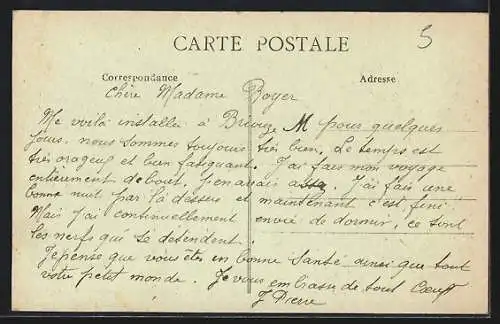 5
CARTE POSTALE
Correspondance
Adresse
Chère Madame Royer
Me voilà installée à pour quelques
jours, nous sommes toujours très bien. Le temps est
très orageux et bien fatiguant. J'ai fais mon voyage
entièrement debout, j'enavais assez. J'ai fais une
bonne nuit par là dessus et maintenant c'est fini.
Mais j'ai continuellement envie de dormir, ce sont
les nerfs qui se détendent.
Je pense que vous êtes en bonne Santé ainsi que tout
votre petit monde. Je vous embrasse de tout Cœur
Pierre